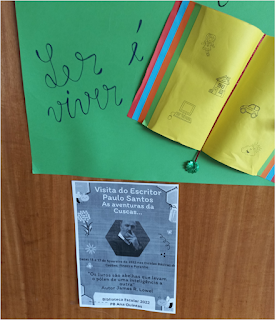 Ler é
viver
Visita do Escritor
Paulo Santos
As aventuras da
Cuscas...
"Os livros são abelhas que levam
o pólen de uma inteligência a
outra"
Autor James R. Lowell
Biblioteca Escolar 2022